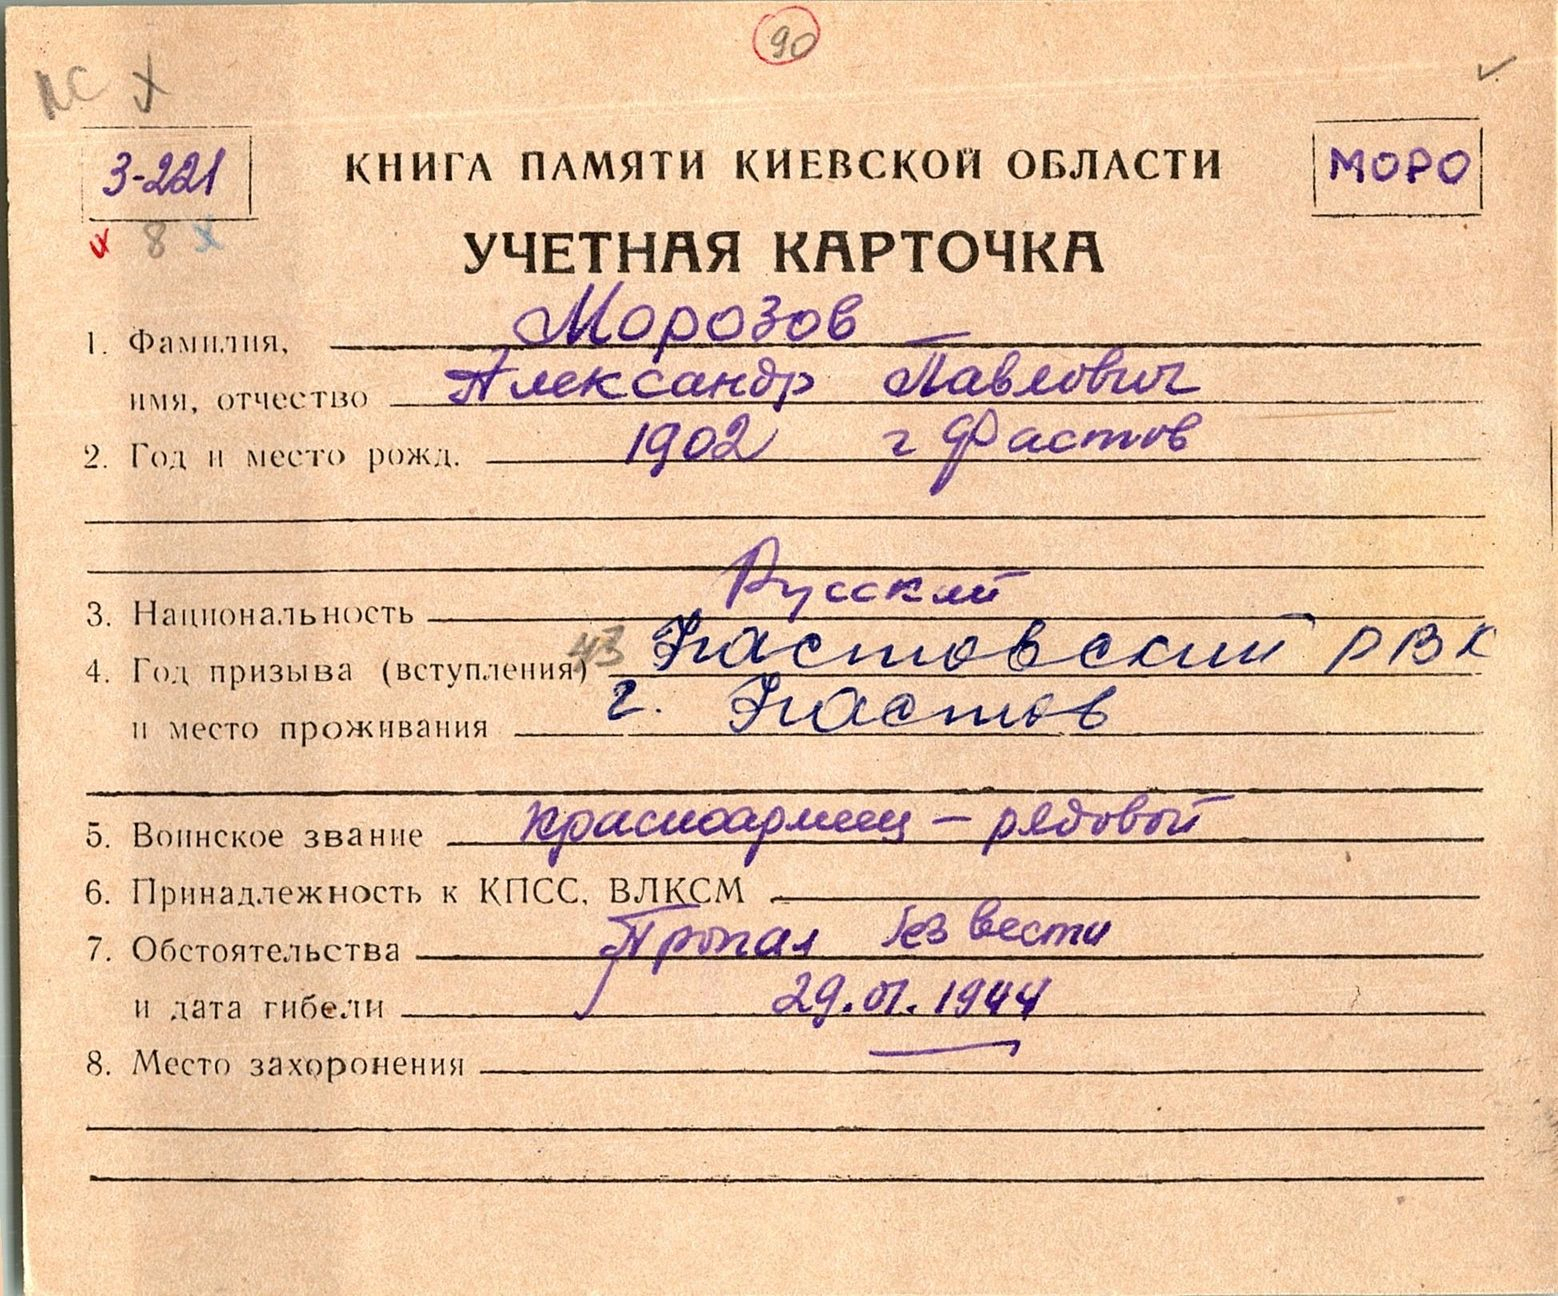 90
3-221
КНИГА ПАМЯТИ КИЕВСКОЙ ОБЛАСТИ
МОРО
8
УЧЕТНАЯ КАРТОЧКА
1. Фамилия, Морозов
имя, отчество Александр Павлович
2. Год и место рожд. 1902 г Фастов
3. Национальность Русский
4. Год призыва (вступления) 43 Фастовский РВК
и место проживания г. Фастов
5. Воинское звание красноармеец – рядовой
6. Принадлежность к КПСС, ВЛКСМ
7. Обстоятельства Пропал без вести
и дата гибели 29.01.1944
8. Место захоронения